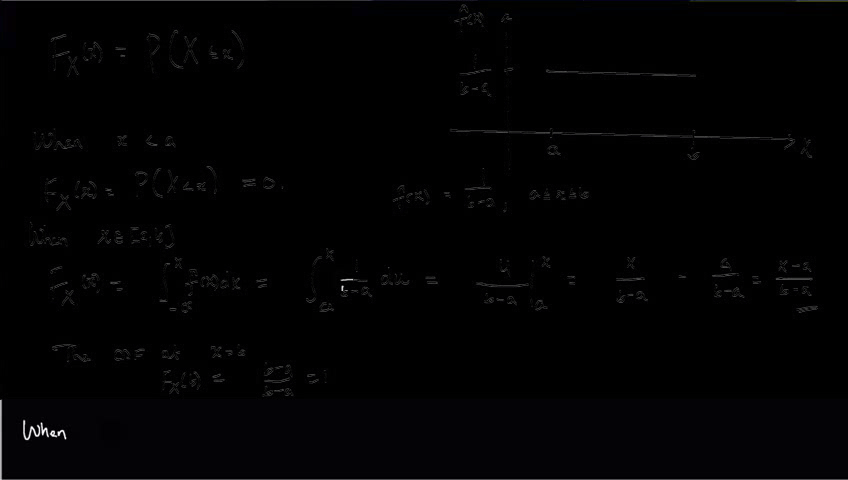 F_X(x) = P(X ≤ x)
f(x)
1/(b-a)
a b X
When x < a
F_X(x) = P(X ≤ x) = 0.
f(x) = 1/(b-a), a ≤ x ≤ b
When x ∈ [a,b]
F_X(x) = ∫_{-∞}^{x} f(x)dx = ∫_a^x 1/(b-a) du = u/(b-a) |_a^x = x/(b-a) - a/(b-a) = (x-a)/(b-a)
The CDF at x=b
F_X(b) = (b-a)/(b-a) = 1
When